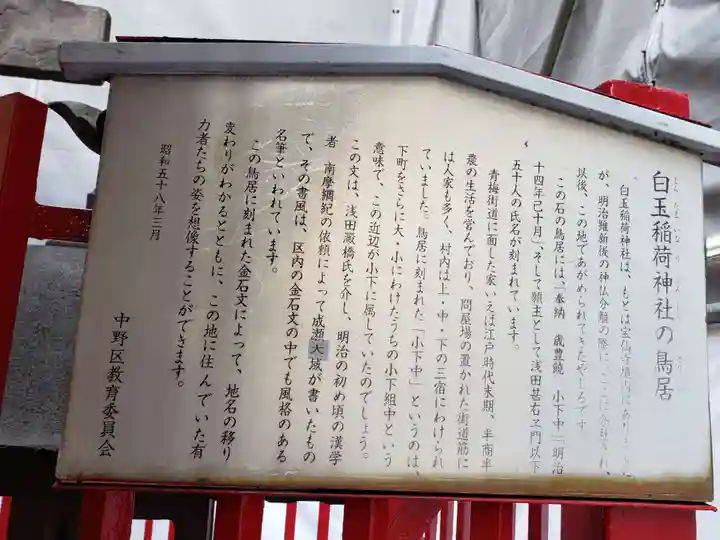 白玉稲荷神社の鳥居
白玉稲荷神社は、もとは宝仙寺境内にあり
が、明治維新後の神仏分離の際に、ここに分祀され、
以後、この地であがめられてきたやしろです
この石の鳥居には、「奉納 歳豊饒 小下中」「明治
十四年己十月」、そして願主として浅田甚右エ門以下
五十人の氏名が刻まれています。
青梅街道に面した家いえは江戸時代末期、半商半
農の生活を営んでおり、問屋場の置かれた街道筋に
は人家も多く、村内は上・中・下の三宿にわけられ
ていました。鳥居に刻まれた「小下中」というのは、
下町をさらに大・小にわけたうちの小下組中という
意味で、この近辺が小下に属していたのでしょう。
この文は、浅田澱橋氏を介し、明治の初め頃の漢学
者 南摩綱紀の依頼によって成瀬大域が書いたもの
で、その書風は、区内の金石文の中でも風格のある
名筆といわれています。
この鳥居に刻まれた金石文によって、地名の移り
変わりがわかるとともに、この地に住んでいた有
力者たちの姿を想像することができます。
昭和五十八年三月
中野区教育委員会